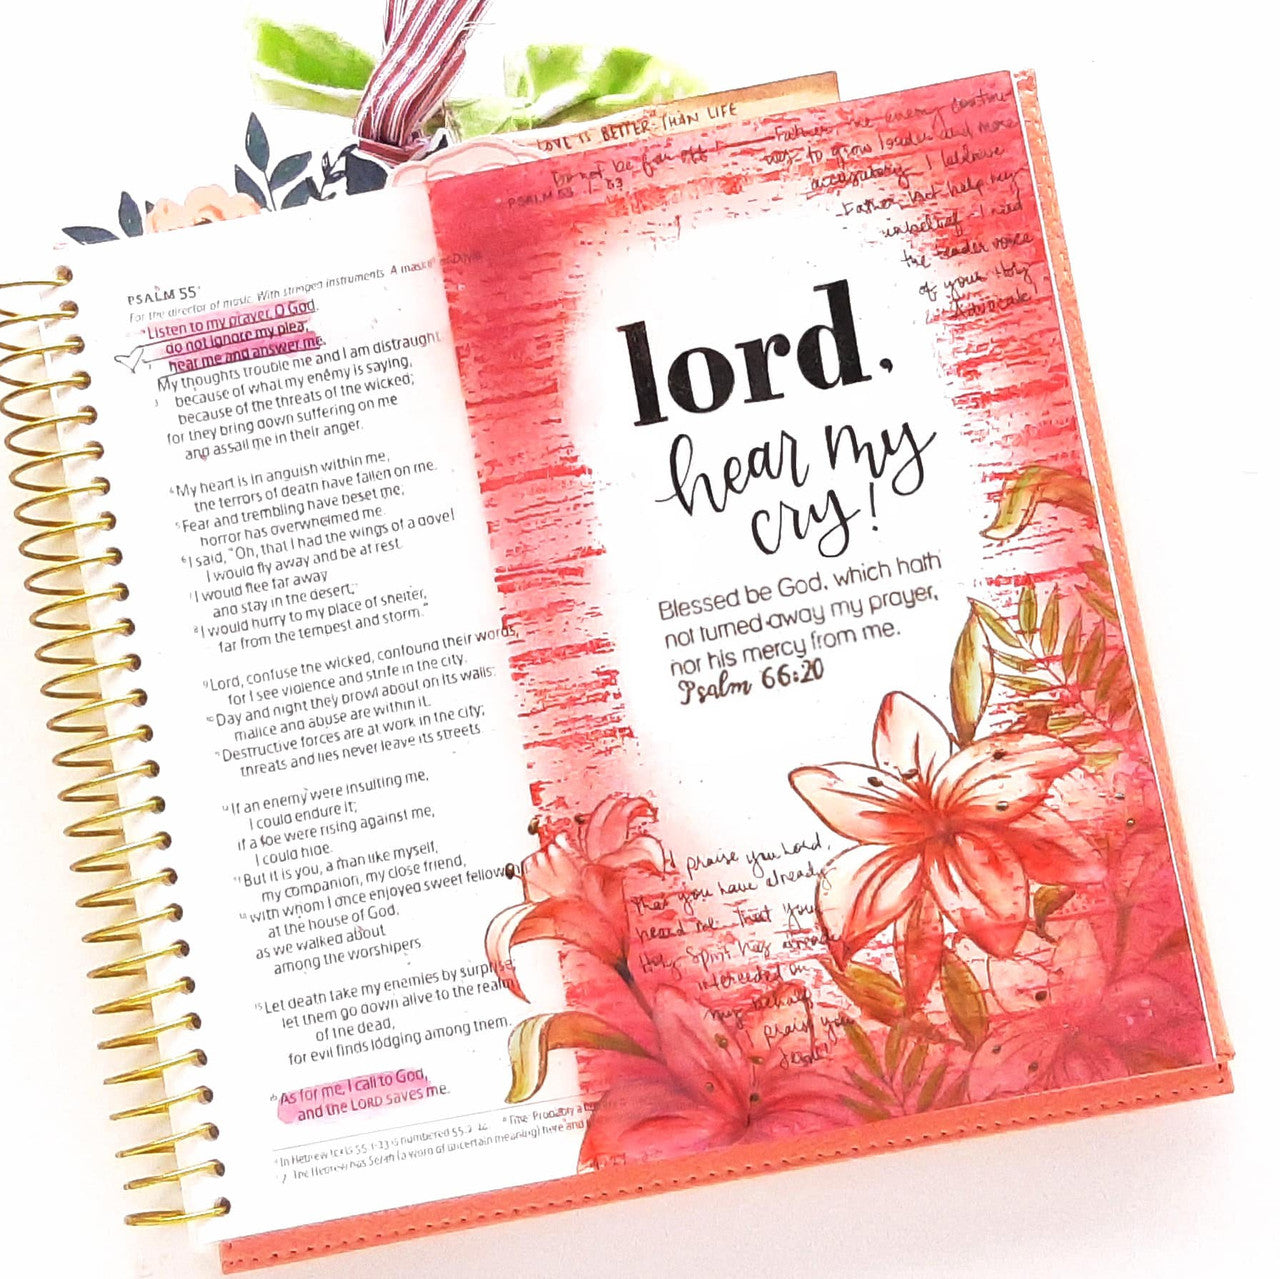 LOVE IS BETTER THAN LIFE
PSALM 55
For the director of music. With stringed instruments. A
Listen to my prayer, O God,
do not ignore my plea;
hear me and answer me.
My thoughts trouble me and I am distraught
3 because of what my enemy is saying,
because of the threats of the wicked;
for they bring down suffering on me
and assail me in their anger.
4 My heart is in anguish within me,
the terrors of death have fallen on me.
5 Fear and trembling have beset me;
horror has overwhelmed me.
6 I said, "Oh, that I had the wings of a dove!
I would fly away and be at rest.
7 I would flee far away
and stay in the desert;
8 I would hurry to my place of shelter,
far from the tempest and storm."
9 Lord, confuse the wicked, confound their words,
for I see violence and strife in the city.
10 Day and night they prowl about on its walls;
malice and abuse are within it.
11 Destructive forces are at work in the city;
threats and lies never leave its streets.
12 If an enemy were insulting me,
I could endure it;
if a foe were rising against me,
I could hide.
13 But it is you, a man like myself,
my companion, my close friend,
14 with whom I once enjoyed sweet fellow
at the house of God,
as we walked about
among the worshipers
15 Let death take my enemies by surprise;
let them go down alive to the realm
of the dead,
for evil finds lodging among them.
16 As for me, I call to God,
and the LORD saves me.
In Hebrew 55:1-23 is numbered 55:2-24. Title: Probably a
7 The Hebrew has Selah (a word of uncertain meaning) here and
Do not be far off
PSALM 55
Father, the enemy
to grow louder and more
accusatory. I believe
Father but help my
unbelief. I need
the tender voice
of your Holy
Advocate.
lord,
hear my
cry!
Blessed be God, which hath
not turned away my prayer,
nor his mercy from me.
Psalm 66:20
I praise you Lord,
that you have already
heard me. That your
Holy Spirit has already
interceded on
my behalf.
I praise you